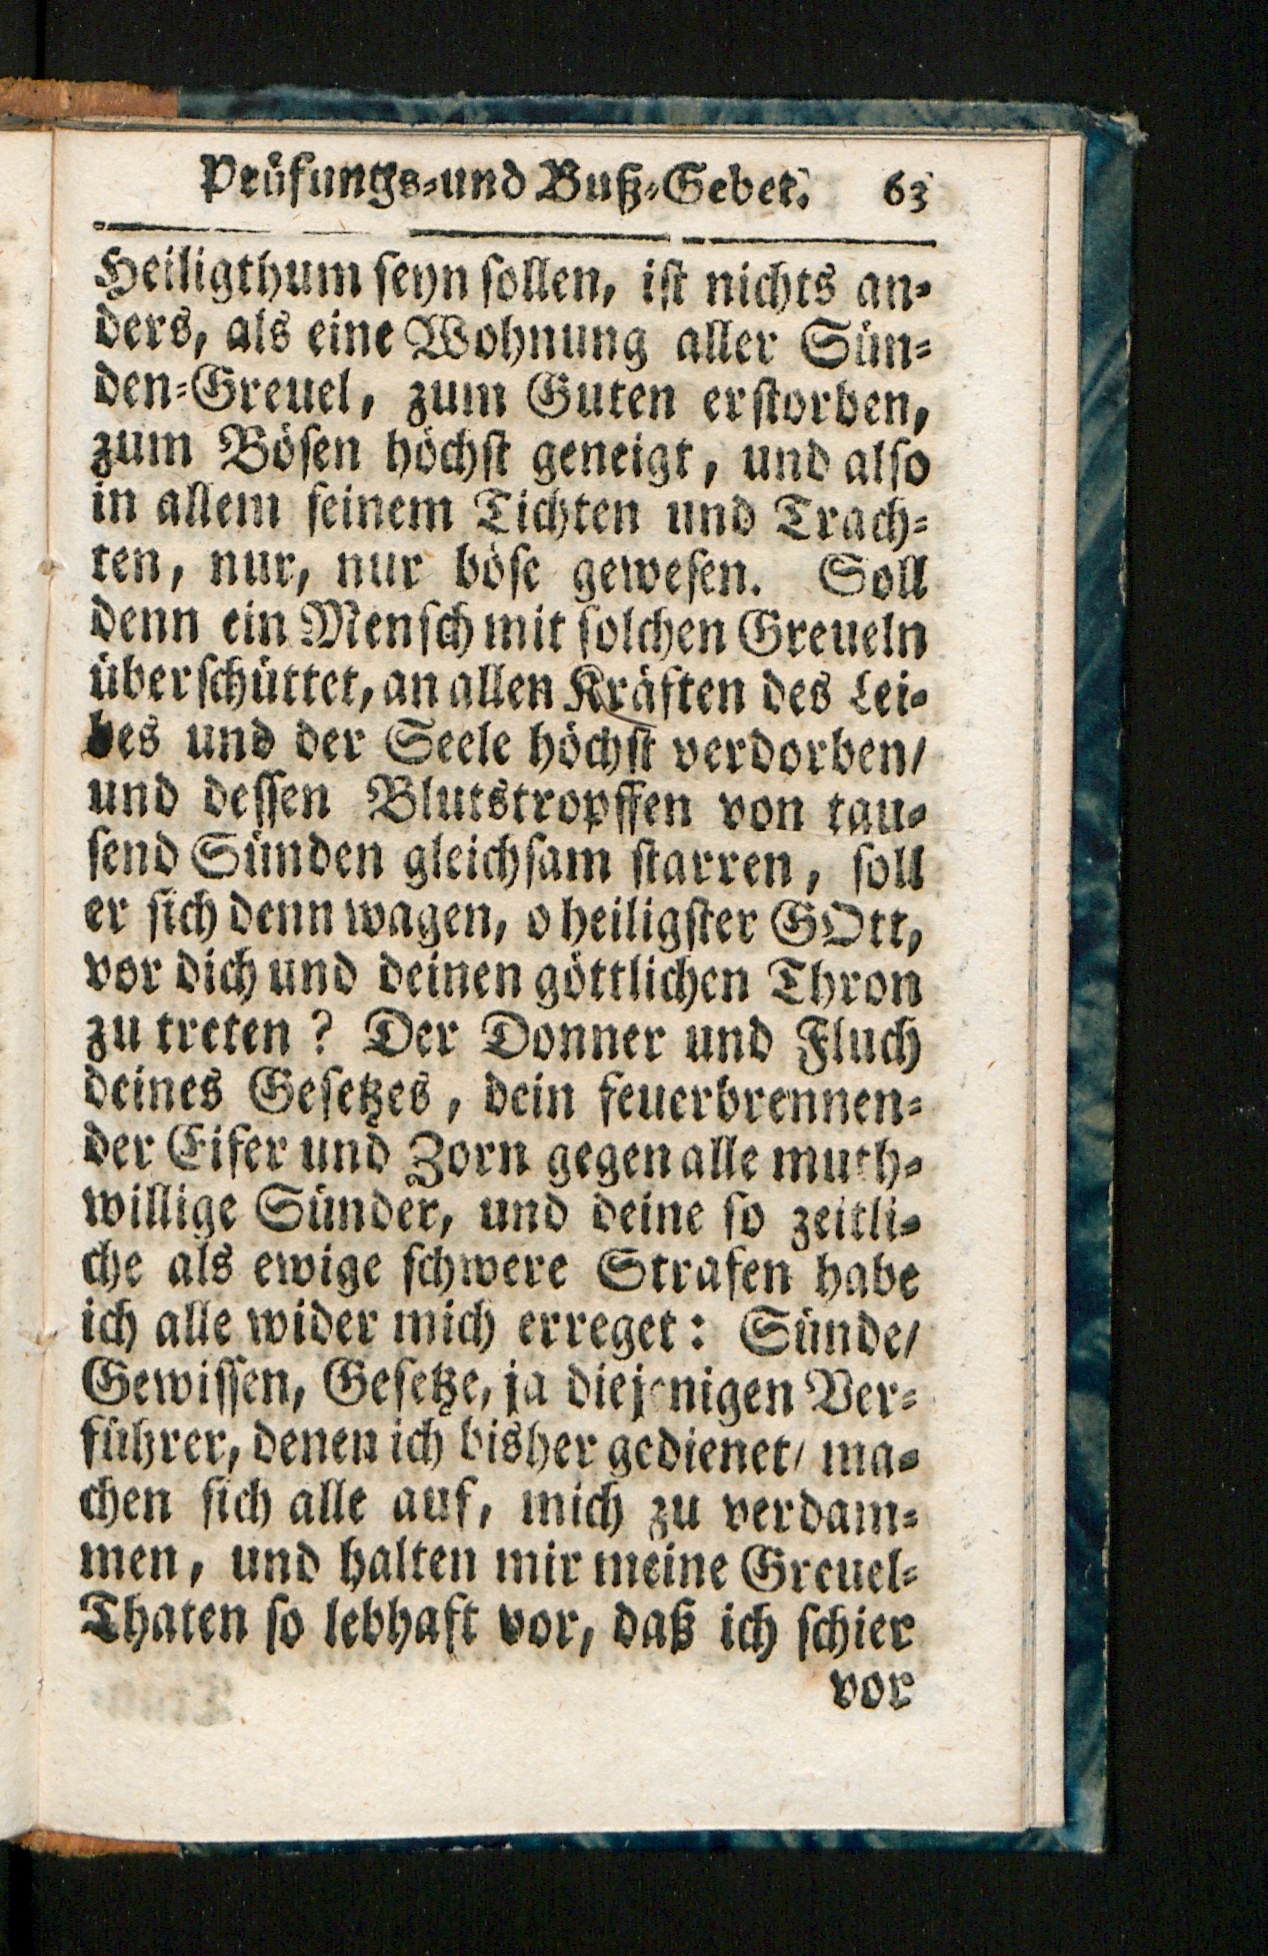 Prüfungs-und Buß-Gebet. 63
Heiligthum seyn sollen, ist nichts an-
ders, als eine Wohnung aller Sün-
den-Greuel, zum Guten erstorben,
zum Bösen höchst geneigt, und also
in allem seinem Tichten und Trach-
ten, nur, nur böse gewesen. Soll
denn ein Mensch mit solchen Greueln
überschüttet, an allen Kräften des Lei-
bes und der Seele höchst verdorben/
und dessen Blutstropffen von tau-
send Sünden gleichsam starren, soll
er sich denn wagen, o heiligster GOtt,
vor dich und deinen göttlichen Thron
zu treten? Der Donner und Fluch
deines Gesetzes, dein feuerbrennen-
der Eifer und Zorn gegen alle muth-
willige Sünder, und deine so zeitli-
che als ewige schwere Strafen habe
ich alle wider mich erreget: Sünde/
Gewissen, Gesetze, ja diejenigen Ver-
führer, denen ich bisher gedienet/ ma-
chen sich alle auf, mich zu verdam-
men, und halten mir meine Greuel-
Thaten so lebhaft vor, daß ich schier
vor